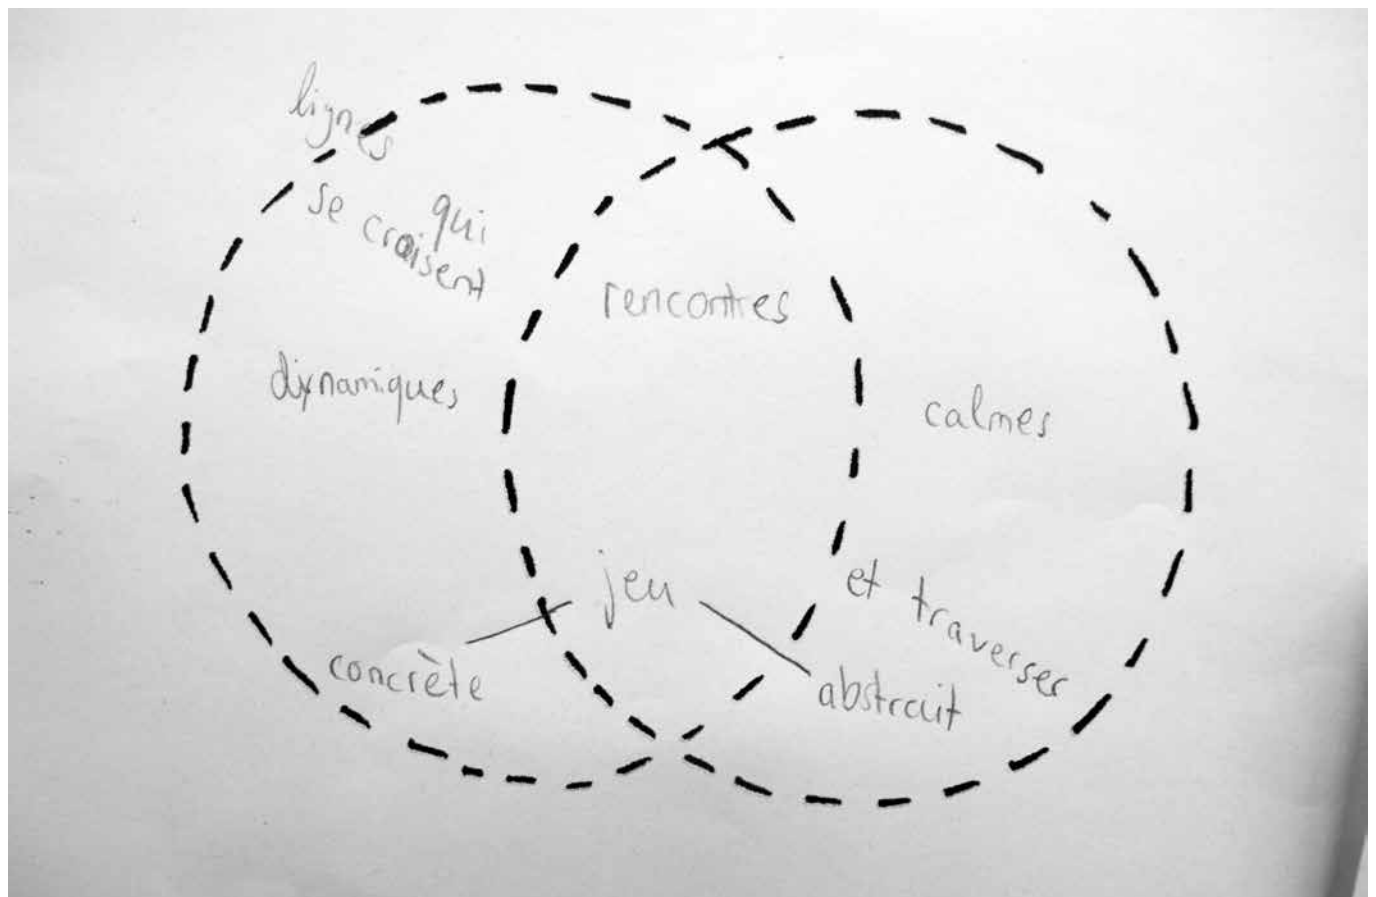 lignes
qui
se croisent
rencontres
dynamiques
calmes
jeu
et traverser
concrète
abstrait